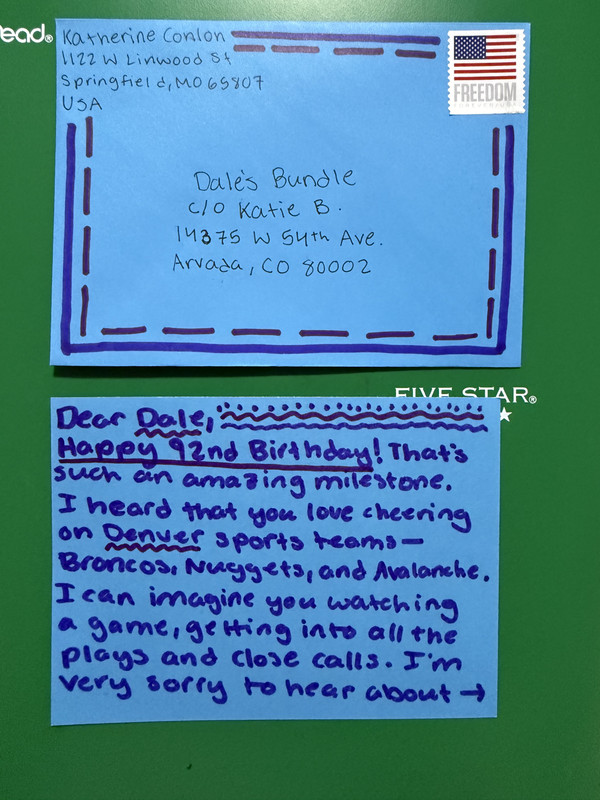 ead®
Katherine Conlon
1122 W Linwood St
Springfield, MO 65807
USA
FREEDOM
Dale's Bundle
c/o Katie B.
14375 W 54th Ave.
Arvada, CO 80002
FIVE STAR®
Dear Dale,
Happy 92nd Birthday! That's
such an amazing milestone.
I heard that you love cheering
on Denver sports teams—
Broncos, Nuggets, and Avalanche.
I can imagine you watching
a game, getting into all the
plays and close calls. I'm
very sorry to hear about →